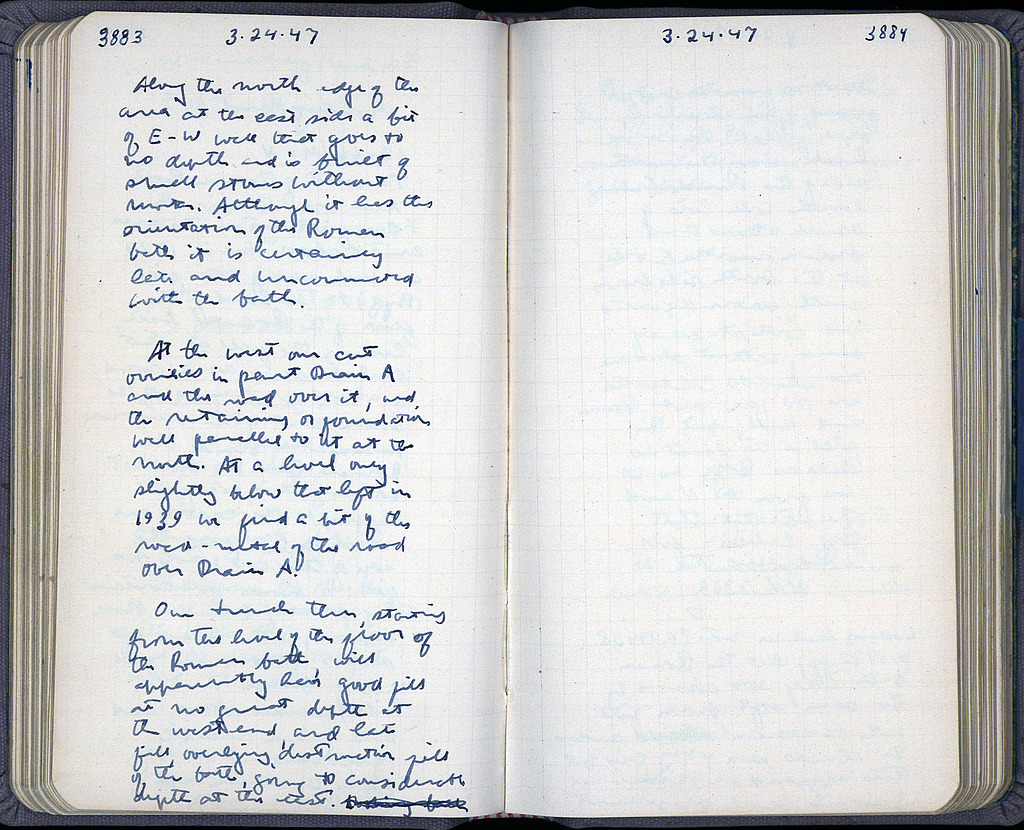 3883
3·24·47
Along the north edge of the
area at the east side a bit
of E-W wall that goes to
no depth and is built of
small stones without
mortar. Although it has the
orientation of the Roman
bath it is certainly
late and unconnected
with the bath.
At the west our cut
overlies in part Drain A
and the road over it, and
the retaining or foundation
wall parallel to it at the
north. At a level only
slightly below that left in
1939 we find a bit of the
road-metal of the road
over Drain A.
Our trench then, starting
from the level of the floor of
the Roman bath, will
apparently have good fills
at no great depth at
the west end, and late
fill, overlying destruction fill
of the bath, going to considerable
depth at the east.
3·24·47
3884